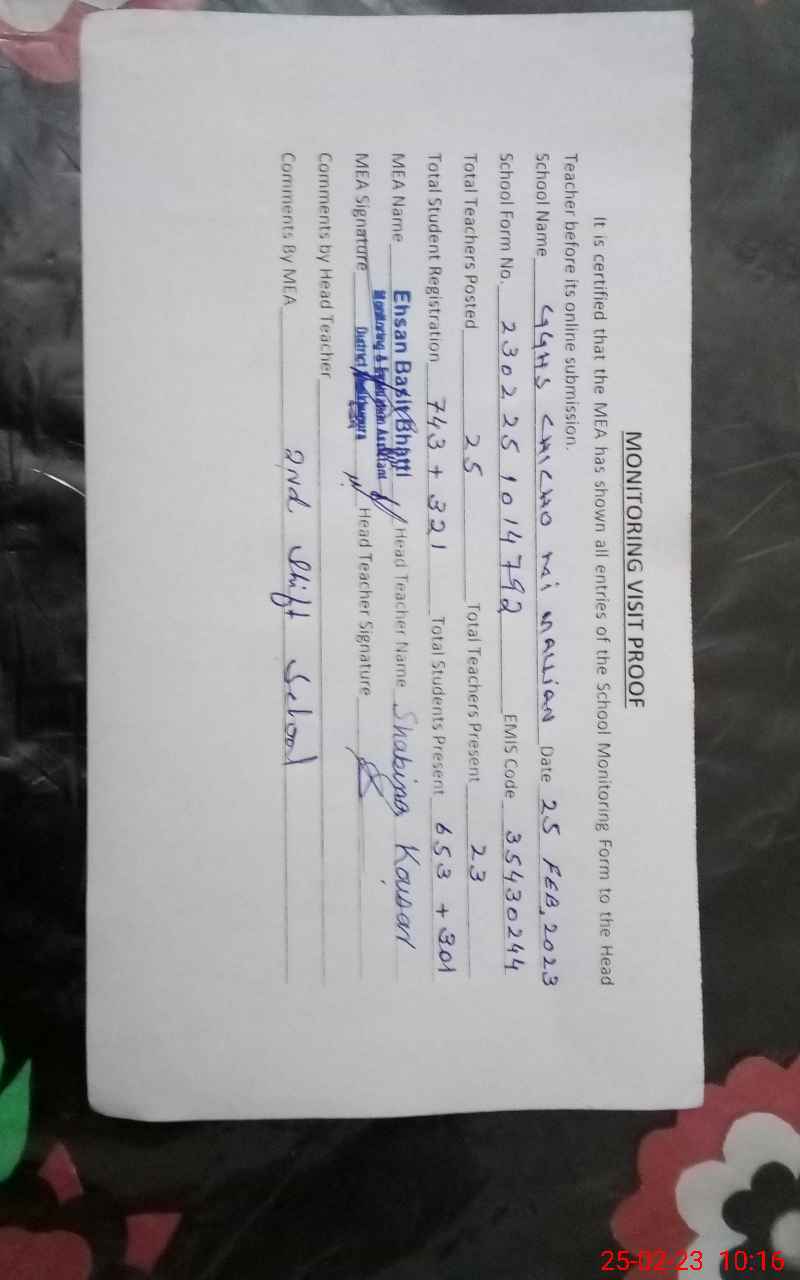 MONITORING VISIT PROOF
It is certified that the MEA has shown all entries of the School Monitoring Form to the Head
Teacher before its online submission.
School Name GGHS CHICHO ki MALLIAN Date 25 FEB, 2023
School Form No. 230225 1014792 EMIS Code 35430244
Total Teachers Posted 25 Total Teachers Present 23
Total Student Registration 743 + 321 Total Students Present 653 + 301
MEA Name Ehsan Basit Bhatti Head Teacher Name Shabina Kousar
Monitoring & Evaluation Assistant
MEA Signature District Sheikhupura Head Teacher Signature
Comments by Head Teacher
Comments By MEA 2nd Shift School
25-02-23 10:16